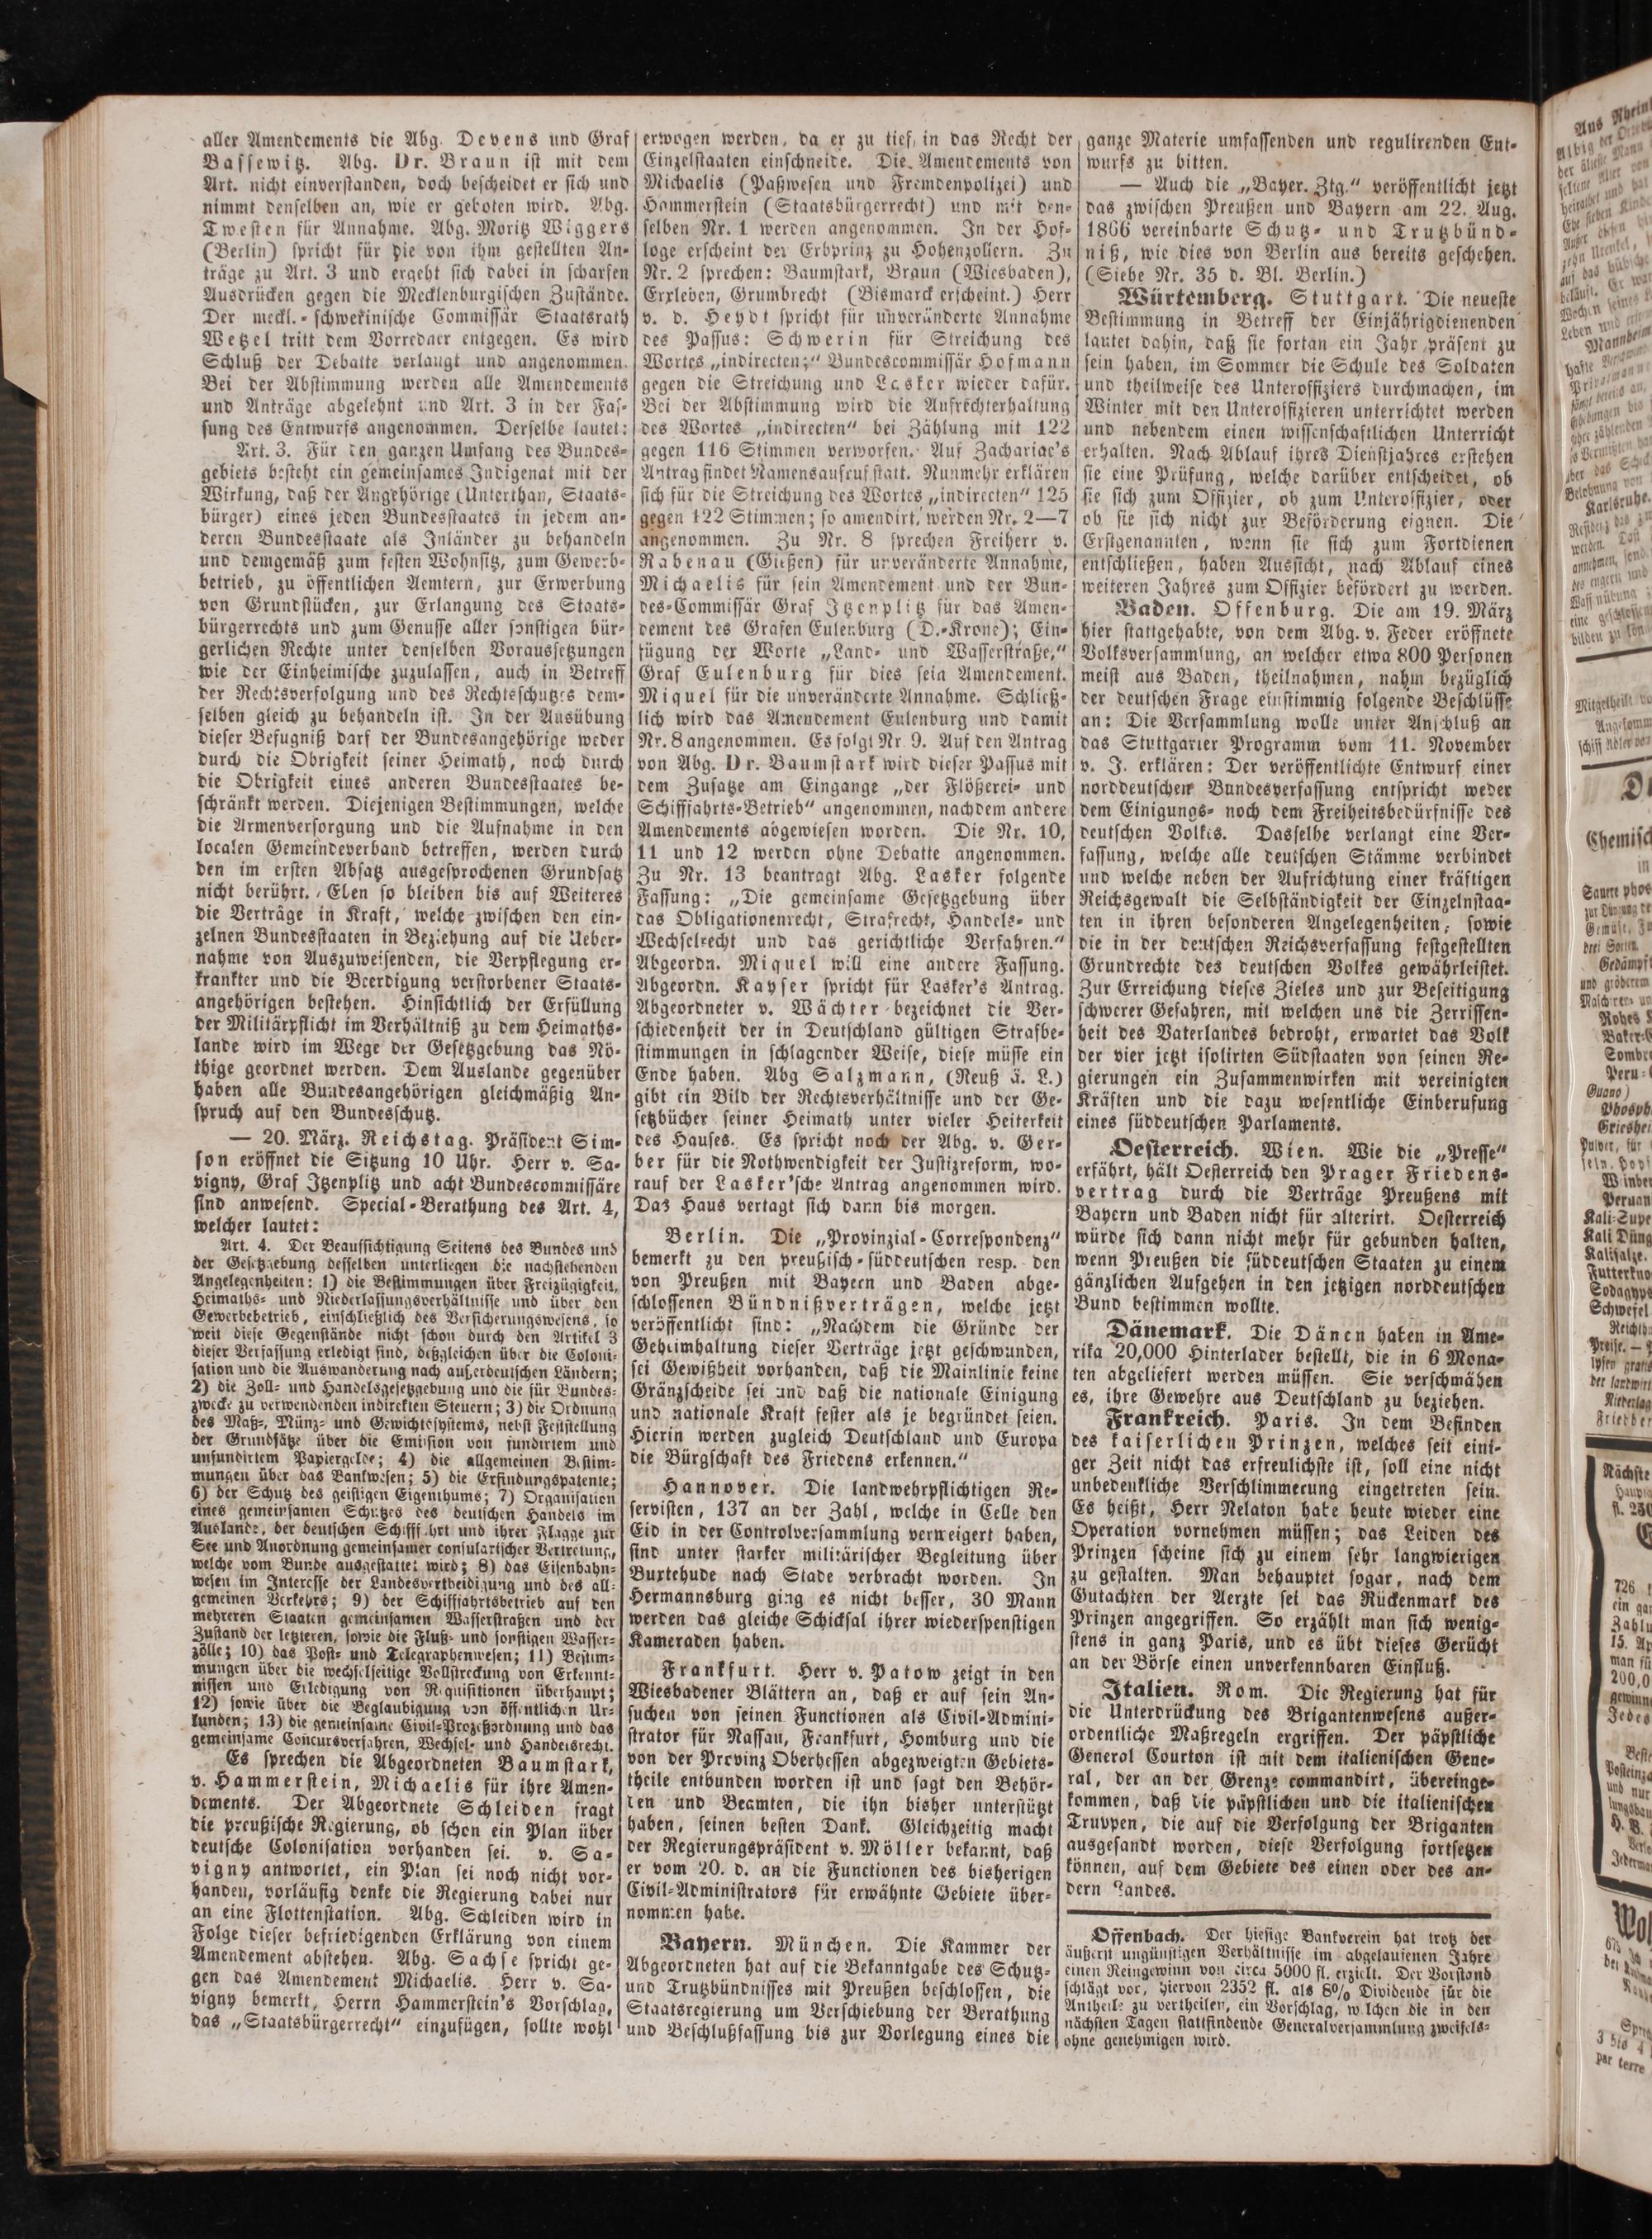 aller Amendements die Abg. Devens und Graf
Bassewitz. Abg. Dr. Braun ist mit dem
Art. nicht einverstanden, doch bescheidet er sich und
nimmt denselben an, wie er geboten wird. Abg.
Twesten für Annahme. Abg. Moritz Wiggers
(Berlin) spricht für die von ihm gestellten An-
träge zu Art. 3 und ergeht sich dabei in scharfen
Ausdrücken gegen die Mecklenburgischen Zustände.
Der meckl.-schwerinische Commissär Staatsrath
Wetzel tritt dem Vorredner entgegen. Es wird
Schluß der Debatte verlangt und angenommen.
Bei der Abstimmung werden alle Amendements
und Anträge abgelehnt und Art. 3 in der Fas-
sung des Entwurfs angenommen. Derselbe lautet:
Art. 3. Für den ganzen Umfang des Bundes-
gebiets besteht ein gemeinsames Indigenat mit der
Wirkung, daß der Angehörige (Unterthan, Staats-
bürger) eines jeden Bundesstaates in jedem an-
deren Bundesstaate als Inländer zu behandeln
und demgemäß zum festen Wohnsitz, zum Gewerb-
betrieb, zu öffentlichen Aemtern, zur Erwerbung
von Grundstücken, zur Erlangung des Staats-
bürgerrechts und zum Genusse aller sonstigen bür-
gerlichen Rechte unter denselben Voraussetzungen
wie der Einheimische zuzulassen, auch in Betreff
der Rechtsverfolgung und des Rechtsschutzes dem-
selben gleich zu behandeln ist. In der Ausübung
dieser Befugniß darf der Bundesangehörige weder
durch die Obrigkeit seiner Heimath, noch durch
die Obrigkeit eines anderen Bundesstaates be-
schränkt werden. Diejenigen Bestimmungen, welche
die Armenversorgung und die Aufnahme in den
localen Gemeindeverband betreffen, werden durch
den im ersten Absatz ausgesprochenen Grundsatz
nicht berührt. Eben so bleiben bis auf Weiteres
die Verträge in Kraft, welche zwischen den ein-
zelnen Bundesstaaten in Beziehung auf die Ueber-
nahme von Auszuweisenden, die Verpflegung er-
krankter und die Beerdigung verstorbener Staats-
angehörigen bestehen. Hinsichtlich der Erfüllung
der Militärpflicht im Verhältniß zu dem Heimaths-
lande wird im Wege der Gesetzgebung das Nö-
thige geordnet werden. Dem Auslande gegenüber
haben alle Bundesangehörigen gleichmäßig An-
spruch auf den Bundesschutz.
— 20. März. Reichstag. Präsident Sim-
son eröffnet die Sitzung 10 Uhr. Herr v. Sa-
vigny, Graf Itzenplitz und acht Bundescommissäre
sind anwesend. Special-Berathung des Art. 4,
welcher lautet:
Art. 4. Der Beaufsichtigung Seitens des Bundes und
der Gesetzgebung desselben unterliegen die nachstehenden
Angelegenheiten: 1) die Bestimmungen über Freizügigkeit,
Heimaths- und Niederlassungsverhältnisse und über den
Gewerbebetrieb, einschließlich des Versicherungswesens, so
weit diese Gegenstände nicht schon durch den Artikel 3
dieser Verfassung erledigt sind, deßgleichen über die Coloni-
sation und die Auswanderung nach außerdeutschen Ländern;
2) die Zoll- und Handelsgesetzgebung und die für Bundes-
zwecke zu verwendenden indirekten Steuern; 3) die Ordnung
des Maß-, Münz- und Gewichtssystems, nebst Feststellung
der Grundsätze über die Emission von fundirtem und
unfundirtem Papiergelde; 4) die allgemeinen Bestim-
mungen über das Bankwesen; 5) die Erfindungspatente;
6) der Schutz des geistigen Eigenthums; 7) Organisation
eines gemeinsamen Schutzes des deutschen Handels im
Auslande, der deutschen Schifffahrt und ihrer Flagge zur
See und Anordnung gemeinsamer consularischer Vertretung,
welche vom Bunde ausgestattet wird; 8) das Eisenbahn-
wesen im Interesse der Landesvertheidigung und des all-
gemeinen Verkehrs; 9) der Schiffahrtsbetrieb auf den
mehreren Staaten gemeinsamen Wasserstraßen und der
Zustand der letzteren, sowie die Fluß- und sonstigen Wasser-
zölle; 10) das Post- und Telegraphenwesen; 11) Bestim-
mungen über die wechselseitige Vollstreckung von Erkennt-
nissen und Erledigung von Requisitionen überhaupt;
12) sowie über die Beglaubigung von öffentlichen Ur-
kunden; 13) die gemeinsame Civil-Prozeßordnung und das
gemeinsame Concursverfahren, Wechsel- und Handelsrecht.
Es sprechen die Abgeordneten Baumstark,
v. Hammerstein, Michaelis für ihre Amen-
dements. Der Abgeordnete Schleiden fragt
die preußische Regierung, ob schon ein Plan über
deutsche Colonisation vorhanden sei. v. Sa-
vigny antwortet, ein Plan sei noch nicht vor-
handen, vorläufig denke die Regierung dabei nur
an eine Flottenstation. Abg. Schleiden wird in
Folge dieser befriedigenden Erklärung von einem
Amendement abstehen. Abg. Sachse spricht ge-
gen das Amendement Michaelis. Herr v. Sa-
vigny bemerkt, Herrn Hammerstein's Vorschlag,
das „Staatsbürgerrecht" einzufügen, sollte wohl
erwogen werden, da er zu tief in das Recht der
Einzelstaaten einschneide. Die Amendements von
Michaelis (Paßwesen und Fremdenpolizei) und
Hammerstein (Staatsbürgerrecht) und mit den-
selben Nr. 1 werden angenommen. In der Hof-
loge erscheint der Erbprinz zu Hohenzollern. Zu
Nr. 2 sprechen: Baumstark, Braun (Wiesbaden),
Erxleben, Grumbrecht (Bismarck erscheint.) Herr
v. d. Heydt spricht für unveränderte Annahme
des Passus: Schwerin für Streichung des
Wortes „indirecten;" Bundescommissär Hofmann
gegen die Streichung und Lasker wieder dafür.
Bei der Abstimmung wird die Aufrechterhaltung
des Wortes „indirecten" bei Zählung mit 122
gegen 116 Stimmen verworfen. Auf Zachariae's
Antrag findet Namensaufruf statt. Nunmehr erklären
sich für die Streichung des Wortes „indirecten" 125
gegen 122 Stimmen; so amendirt, werden Nr. 2—7
angenommen. Zu Nr. 8 sprechen Freiherr v.
Rabenau (Gießen) für unveränderte Annahme,
Michaelis für sein Amendement und der Bun-
des-Commissär Graf Itzenplitz für das Amen-
dement des Grafen Eulenburg (D.-Krone); Ein-
fügung der Worte „Land- und Wasserstraße,"
Graf Eulenburg für dies sein Amendement.
Miquel für die unveränderte Annahme. Schließ-
lich wird das Amendement Eulenburg und damit
Nr. 8 angenommen. Es folgt Nr. 9. Auf den Antrag
von Abg. Dr. Baumstark wird dieser Passus mit
dem Zusatze am Eingange „der Flößerei- und
Schifffahrts-Betrieb" angenommen, nachdem andere
Amendements abgewiesen worden. Die Nr. 10,
11 und 12 werden ohne Debatte angenommen.
Zu Nr. 13 beantragt Abg. Lasker folgende
Fassung: „Die gemeinsame Gesetzgebung über
das Obligationenrecht, Strafrecht, Handels- und
Wechselrecht und das gerichtliche Verfahren."
Abgeordn. Miquel will eine andere Fassung.
Abgeordn. Kayser spricht für Lasker's Antrag.
Abgeordneter v. Wächter bezeichnet die Ver-
schiedenheit der in Deutschland gültigen Strafbe-
stimmungen in schlagender Weise, diese müsse ein
Ende haben. Abg Salzmann, (Reuß ä. L.)
gibt ein Bild der Rechtsverhältnisse und der Ge-
setzbücher seiner Heimath unter vieler Heiterkeit
des Hauses. Es spricht noch der Abg. v. Ger-
ber für die Nothwendigkeit der Justizreform, wo-
rauf der Lasker'sche Antrag angenommen wird.
Das Haus vertagt sich dann bis morgen.
Berlin. Die „Provinzial-Correspondenz"
bemerkt zu den preußisch-süddeutschen resp. den
von Preußen mit Bayern und Baden abge-
schlossenen Bündnißverträgen, welche jetzt
veröffentlicht sind: „Nachdem die Gründe der
Geheimhaltung dieser Verträge jetzt geschwunden,
sei Gewißheit vorhanden, daß die Mainlinie keine
Gränzscheide sei und daß die nationale Einigung
und nationale Kraft fester als je begründet seien.
Hierin werden zugleich Deutschland und Europa
die Bürgschaft des Friedens erkennen."
Hannover. Die landwehrpflichtigen Re-
servisten, 137 an der Zahl, welche in Celle den
Eid in der Controlversammlung verweigert haben,
sind unter starker militärischer Begleitung über
Buxtehude nach Stade verbracht worden. In
Hermannsburg ging es nicht besser, 30 Mann
werden das gleiche Schicksal ihrer wiederspenstigen
Kameraden haben.
Frankfurt. Herr v. Patow zeigt in den
Wiesbadener Blättern an, daß er auf sein An-
suchen von seinen Functionen als Civil-Admini-
strator für Nassau, Frankfurt, Homburg und die
von der Provinz Oberhessen abgezweigten Gebiets-
theile entbunden worden ist und sagt den Behör-
den und Beamten, die ihn bisher unterstützt
haben, seinen besten Dank. Gleichzeitig macht
der Regierungspräsident v. Möller bekannt, daß
er vom 20. d. an die Functionen des bisherigen
Civil-Administrators für erwähnte Gebiete über-
nommen habe.
Bayern. München. Die Kammer der
Abgeordneten hat auf die Bekanntgabe des Schutz-
und Trutzbündnisses mit Preußen beschlossen, die
Staatsregierung um Verschiebung der Berathung
und Beschlußfassung bis zur Vorlegung eines die
ganze Materie umfassenden und regulirenden Ent-
wurfs zu bitten.
— Auch die „Bayer. Ztg." veröffentlicht jetzt
das zwischen Preußen und Bayern am 22. Aug.
1866 vereinbarte Schutz- und Trutzbünd-
niß, wie dies von Berlin aus bereits geschehen.
(Siehe Nr. 35 d. Bl. Berlin.)
Würtemberg. Stuttgart. Die neueste
Bestimmung in Betreff der Einjährigdienenden
lautet dahin, daß sie fortan ein Jahr präsent zu
sein haben, im Sommer die Schule des Soldaten
und theilweise des Unteroffiziers durchmachen, im
Winter mit den Unteroffizieren unterrichtet werden
und nebendem einen wissenschaftlichen Unterricht
erhalten. Nach Ablauf ihres Dienstjahres erstehen
sie eine Prüfung, welche darüber entscheidet, ob
sie sich zum Offizier, ob zum Unteroffizier, oder
ob sie sich nicht zur Beförderung eignen. Die
Erstgenannten, wenn sie sich zum Fortdienen
entschließen, haben Aussicht, nach Ablauf eines
weiteren Jahres zum Offizier befördert zu werden.
Baden. Offenburg. Die am 19. März
hier stattgehabte, von dem Abg. v. Feder eröffnete
Volksversammlung, an welcher etwa 800 Personen
meist aus Baden, theilnahmen, nahm bezüglich
der deutschen Frage einstimmig folgende Beschlüsse
an: Die Versammlung wolle unter Anschluß an
das Stuttgarter Programm vom 11. November
v. J. erklären: Der veröffentlichte Entwurf einer
norddeutschen Bundesverfassung entspricht weder
dem Einigungs- noch dem Freiheitsbedürfnisse des
deutschen Volkes. Dasselbe verlangt eine Ver-
fassung, welche alle deutschen Stämme verbindet
und welche neben der Aufrichtung einer kräftigen
Reichsgewalt die Selbständigkeit der Einzelnstaa-
ten in ihren besonderen Angelegenheiten, sowie
die in der deutschen Reichsverfassung festgestellten
Grundrechte des deutschen Volkes gewährleistet.
Zur Erreichung dieses Zieles und zur Beseitigung
schwerer Gefahren, mit welchen uns die Zerrissen-
heit des Vaterlandes bedroht, erwartet das Volk
der vier jetzt isolirten Südstaaten von seinen Re-
gierungen ein Zusammenwirken mit vereinigten
Kräften und die dazu wesentliche Einberufung
eines süddeutschen Parlaments.
Oesterreich. Wien. Wie die „Presse"
erfährt, hält Oesterreich den Prager Friedens-
vertrag durch die Verträge Preußens mit
Bayern und Baden nicht für alterirt. Oesterreich
würde sich dann nicht mehr für gebunden halten,
wenn Preußen die süddeutschen Staaten zu einem
gänzlichen Aufgehen in den jetzigen norddeutschen
Bund bestimmen wollte.
Dänemark. Die Dänen haben in Ame-
rika 20,000 Hinterlader bestellt, die in 6 Mona-
ten abgeliefert werden müssen. Sie verschmähen
es, ihre Gewehre aus Deutschland zu beziehen.
Frankreich. Paris. In dem Befinden
des kaiserlichen Prinzen, welches seit eini-
ger Zeit nicht das erfreulichste ist, soll eine nicht
unbedenkliche Verschlimmerung eingetreten sein.
Es heißt, Herr Nelaton habe heute wieder eine
Operation vornehmen müssen; das Leiden des
Prinzen scheine sich zu einem sehr langwierigen
zu gestalten. Man behauptet sogar, nach dem
Gutachten der Aerzte sei das Rückenmark des
Prinzen angegriffen. So erzählt man sich wenig-
stens in ganz Paris, und es übt dieses Gerücht
an der Börse einen unverkennbaren Einfluß.
Italien. Rom. Die Regierung hat für
die Unterdrückung des Brigantenwesens außer-
ordentliche Maßregeln ergriffen. Der päpstliche
General Courton ist mit dem italienischen Gene-
ral, der an der Grenze commandirt, übereinge-
kommen, daß die päpstlichen und die italienischen
Truppen, die auf die Verfolgung der Briganten
ausgesandt worden, diese Verfolgung fortsetzen
können, auf dem Gebiete des einen oder des an-
dern Landes.
Offenbach. Der hiesige Bankverein hat trotz der
äußerst ungünstigen Verhältnisse im abgelaufenen Jahre
einen Reingewinn von circa 5000 fl. erzielt. Der Vorstand
schlägt vor, hiervon 2352 fl. als 8% Dividende für die
Antheile zu vertheilen, ein Vorschlag, welchen die in den
nächsten Tagen stattfindende Generalversammlung zweifels-
ohne genehmigen wird.